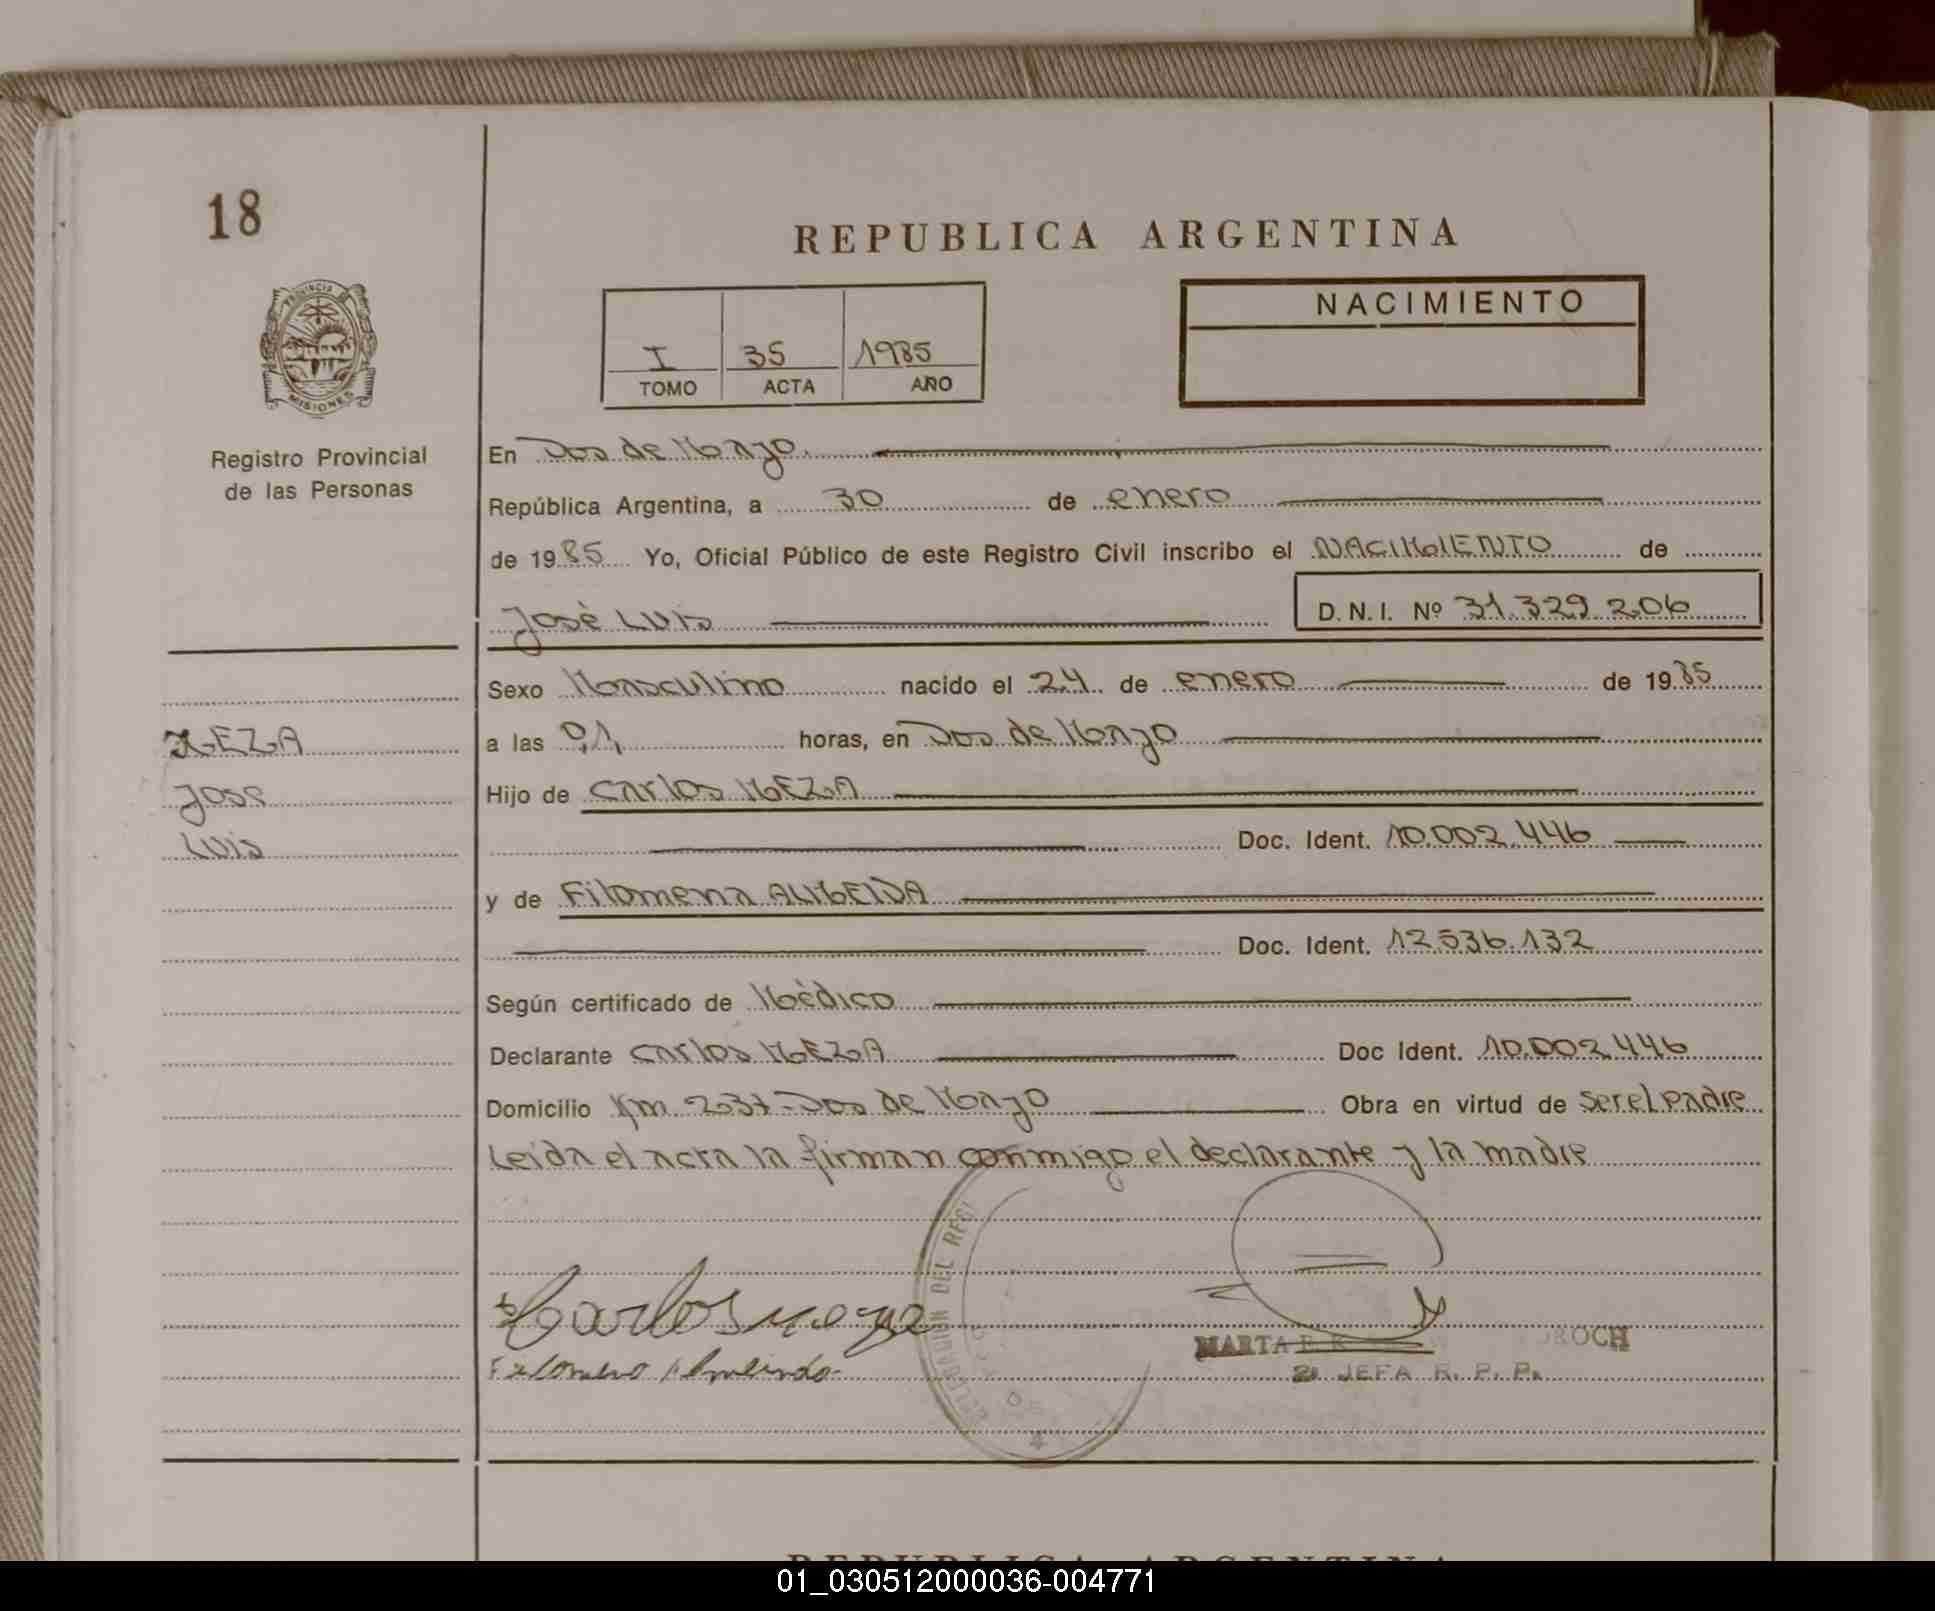 18
REPUBLICA ARGENTINA
PROVINCIA DE
MISIONES
Registro Provincial
de las Personas
NACIMIENTO
I 35 1985
TOMO ACTA AÑO
En Dos de Mayo
República Argentina, a 30 de enero
de 1985 Yo, Oficial Público de este Registro Civil inscribo el NACIMIENTO de
José Luis D.N.I. Nº 31.329.206
Sexo Masculino nacido el 24 de enero de 1985
MEZA
a las 01, horas, en Dos de Mayo
Jose
Hijo de Carlos MEZA
Luis
Doc. Ident. 10.002.446
y de Filomena ALMEIDA
Doc. Ident. 12.536.132
Según certificado de Médico
Declarante Carlos MEZA Doc Ident. 10.002.446
Domicilio Km 237-Dos de Mayo Obra en virtud de ser el padre
Leida el acta la firman conmigo el declarante y la madre
DELEGACION DEL REGI
Carlos meza
MARTA E. ROCH
JEFA R. P. P.
REPUBLICA ARGENTINA
01_030512000036-004771